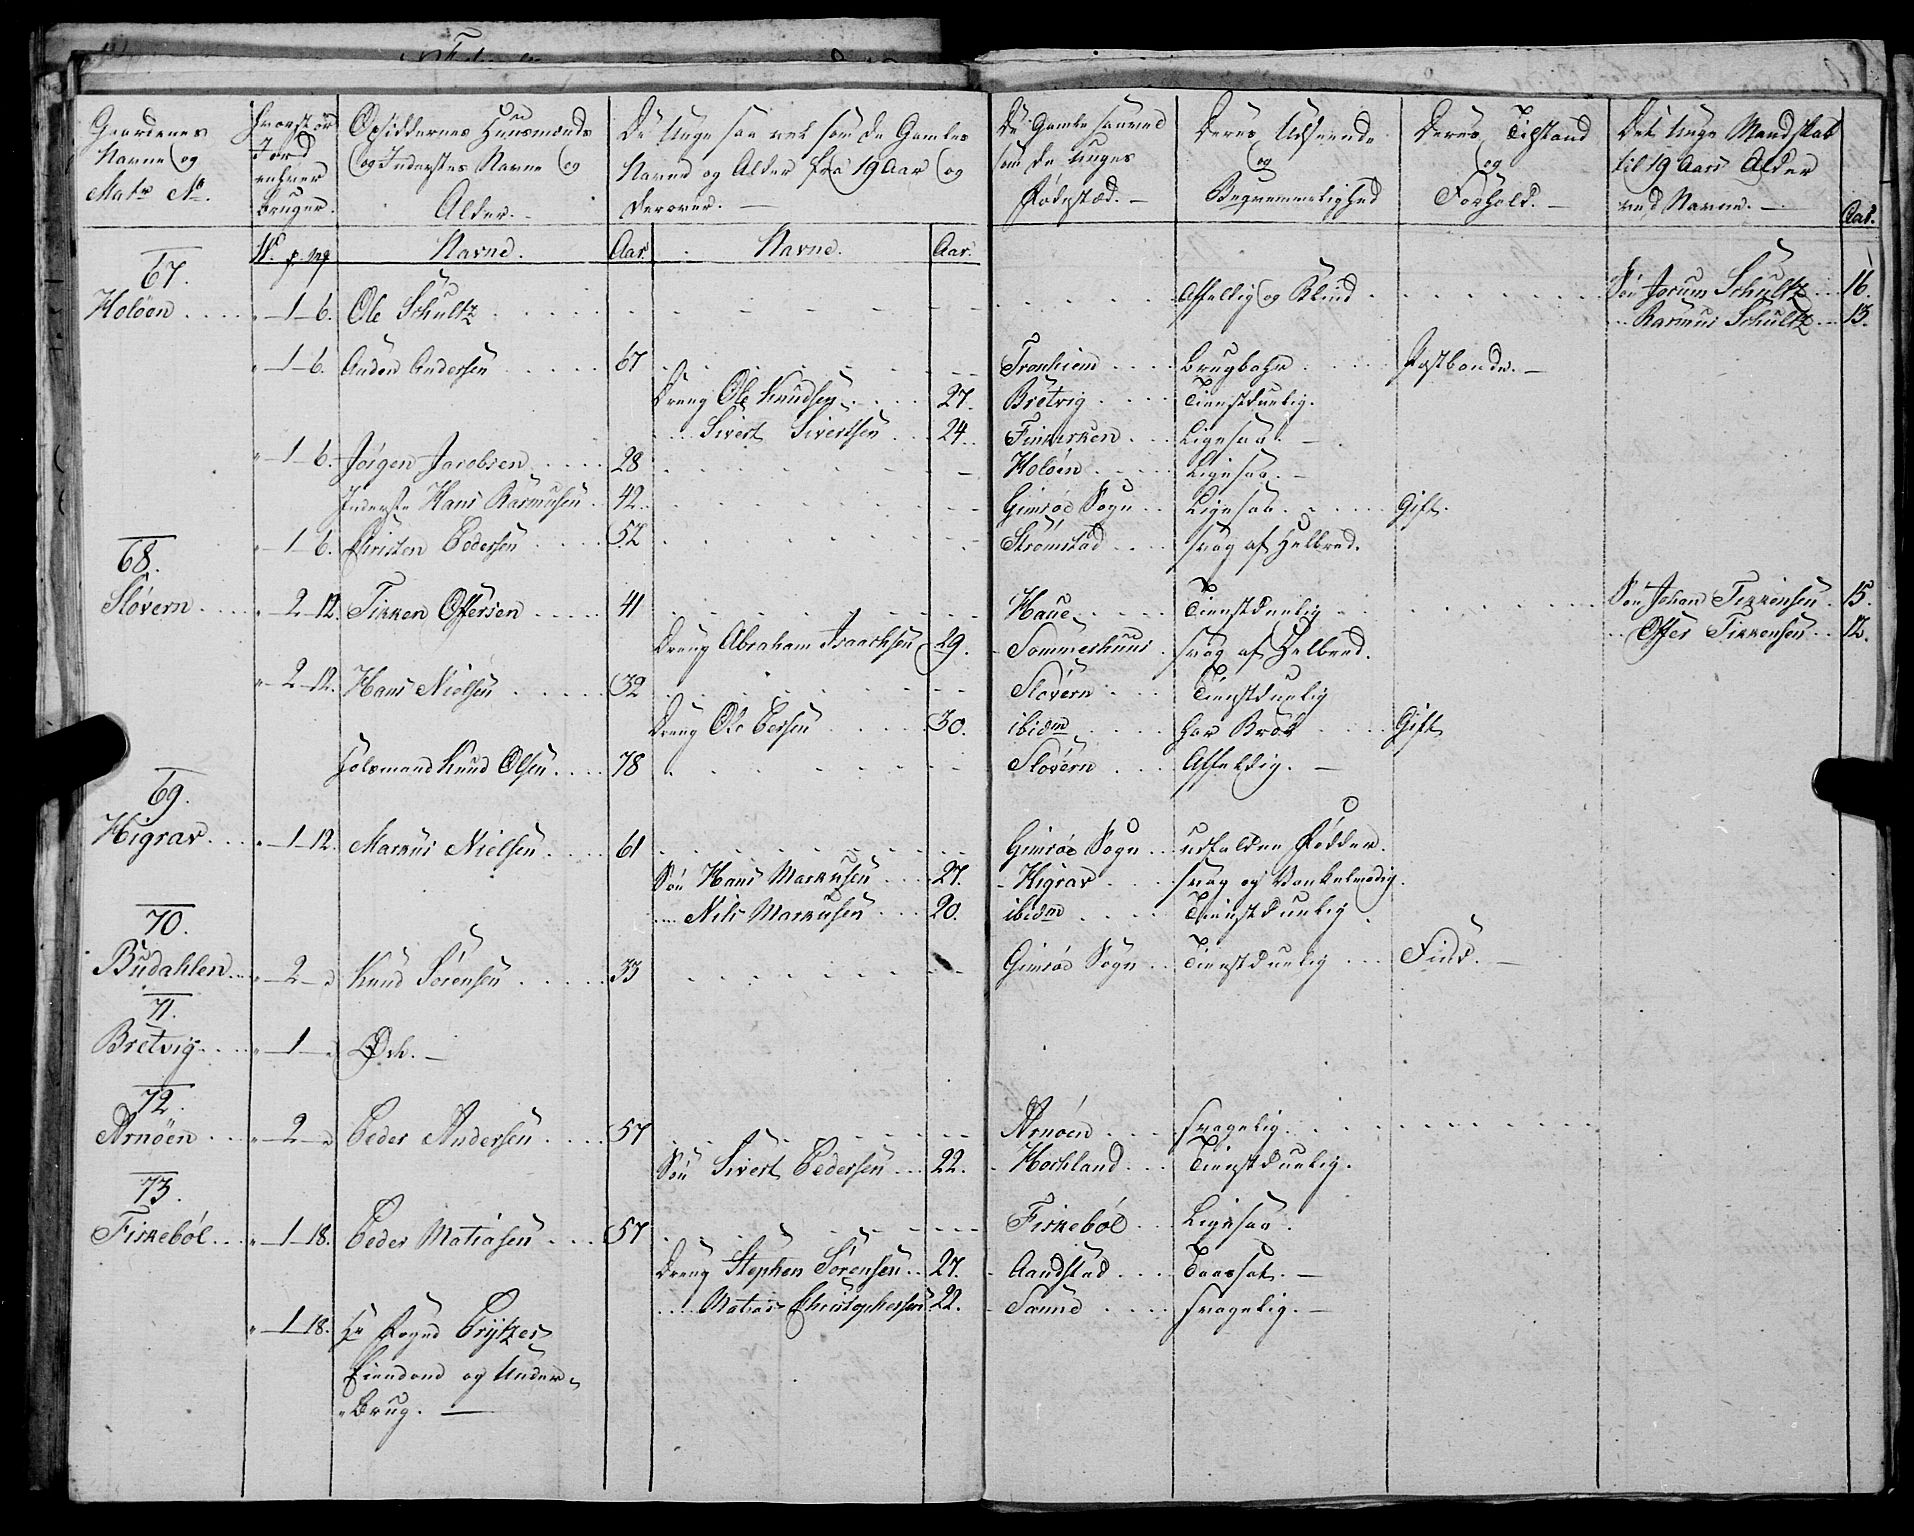 Gaardenes Navne og Matr No.
Hvorstor Jord enhver bruger.
Opsiddernes Huusmænds og Inderstes Navne og Alder.
De Unge saa vel som de Gamles Navne og Alder fra 19 Aar og derover.
De Gamle saavel som de Unges Fødested.
Deres Udseende og Begvemmelighed
Deres Tilstand og Forhold.
Det Unge Mandskab til 19 Aars Alder ved Navne.
Aar.
Navne. Aar. Navne. Aar.
67.
Holöen 1 - 6. Ole Schultz Affeldig og Blind Søn Jorum Schultz 16.
Rasmus Schultz 13.
1 - 6. Anden Andersen 67 Tronhiem brugbahr Postbonde.
Dreng Ole Knudsen 27. Bretvig Tienstduelig.
Sivert Sivertsen 24. Finkirken Ligesaa.
1 - 6. Jörgen Jacobsen 28 Holöen Ligesaa.
Inderste Hans Rasmusen 42 Gimsöe Sogn Ligesaa Gift.
1 - 6. Christen Pedersen 52 Strömstad svag af Helbred.
68.
Slövern 2 - 12. Fikken Offersen 41 Haue Tienstduelig Søn Johan Fikkensen 15.
Offer Fikkensen 12.
Dreng Abraham Isaachsen 29. Sommerhuus svag af Helbred.
2 - 12. Hans Nielsen 32 Slövern Tienstduelig
Dreng Ole Persen 30. ibidm har Brok Gift
Holsmand Knud Olsen 78 Slövern Affeldig.
69.
Higrav 1 - 12. Markus Nielsen 61 Gimsöe Sogn udfalden Fødder.
Søn Hans Markusen 27. Higrav svag og Vankelmodig.
Nils Markusen 20. ibidm Tienstduelig
70.
Budahlen 2 - Knud Sörensen 33 Gimsöe Sogn Tienstduelig Find.
71.
Bretvig 1 - Öde.
72.
Arnöen 2 - Peder Andersen 57 Arnöen svagelig.
Søn Sivert Pedersen 22. Hochland Tienstduelig.
73.
Fiskeböl 1 - 18. Peder Matiasen 57 Fiskeböl Ligesaa.
Dreng Stephen Sörensen 27. Aandstad Taasset.
Matias Christophersen 22. Sund svagelig.
1 - 18. Hr Foged Prytzes
Eiendond og Under-
Brug.